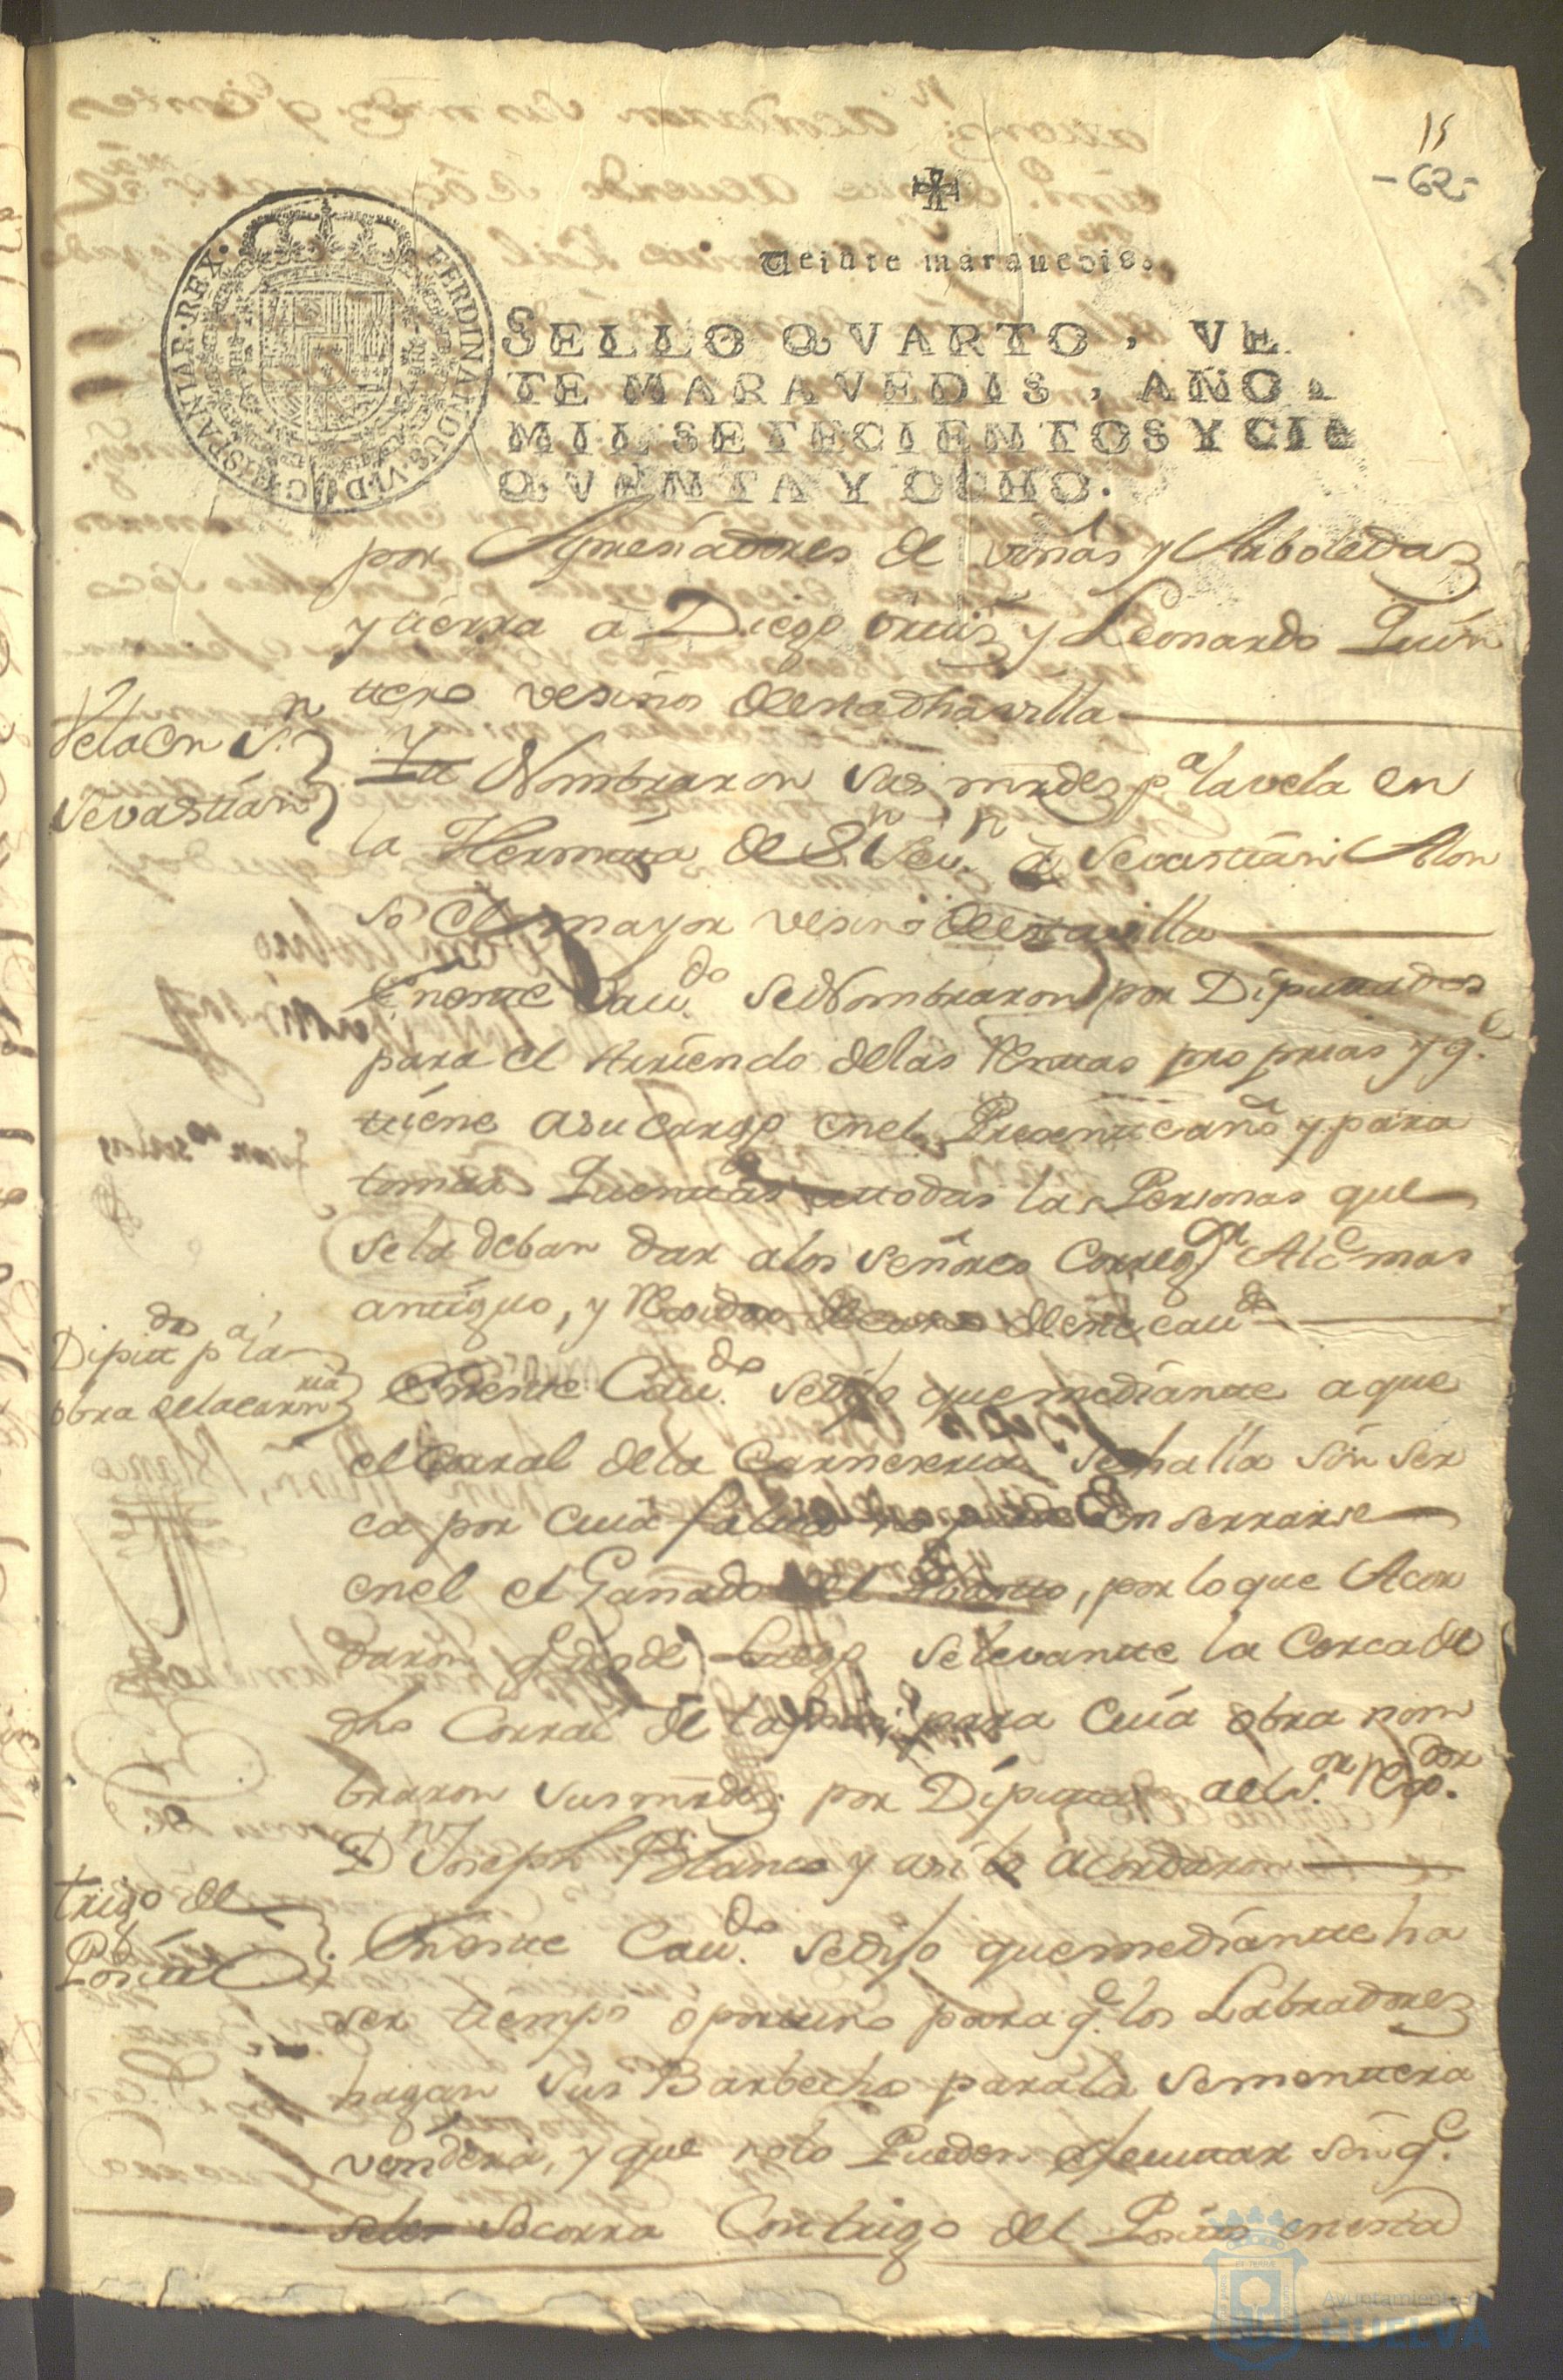 15
-62-
Veinte marauedis.
HISPANIAR·REX· FERDINANDUS·VI·D·G·
SELLO QVARTO, VE
TE MARAVEDIS, AÑO
MIL SETECIENTOS Y CIN
QVENTA Y OCHO.
por Apresiadores de viñas y Arboledas
y tierra a Diego Ortiz y Leonardo Quin
tero vesinos destadha villa
Vela en Sn
Sevastian
Nombraron sus mrdes pa la vela en
la Hermita de Sn Sevn a Sevastian Alon
so el mayor vesino desta villa
En este Caudo se Nombraron por Diputados
para el Arriendo delas Rentas proprias y qe
tiene asu cargo enel Presente año y para
tomar Quentas atodas las Personas que
sela deban dar alos señores Corregor Alce mas
antiguo, y Rexidor deeste caudo
Diputdos pa la
obra dela carnria
En este Caudo sedijo que mediante a que
el Corral dela Carneseria se halla sin ser
ca por cuia falta no puede Enserrarse
enel el Ganado del Abasto, por lo que Acor
daron qe desde Luego selevante la Cerca de
dho Corral de tapias para cuia obra nom
braron sus mrdes por Diputado a el Sor Regdor
Dn Joseph Blanco y asi lo acordaron
trigo del
Posito
En este Caudo sedijo que mediante ha
ser tiempo oportuno para qe los Labradores
hagan sus Barbechos para la sementera
vendera, y que no lo Pueden ejecutar sin qe
seles socorra Con trigo del Posito enesta
Ayuntamiento
HUELVA